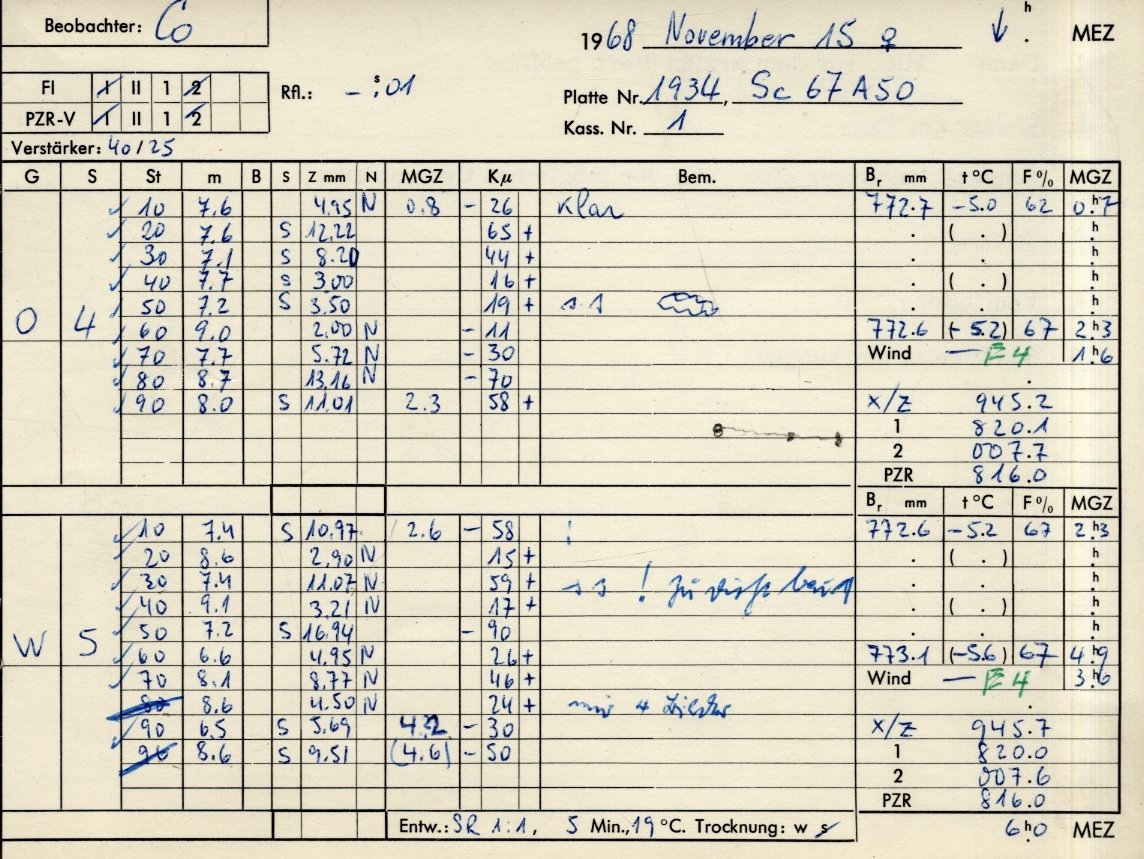 Beobachter: Co
1968 November 15 ♀ ↓ . h MEZ
FI I II 1 2
PZR-V I II 1 2
Rfl.: – s.01
Platte Nr. 1934, Sc 67 A50
Kass. Nr. 1
Verstärker: 40/25
G S St m B S Z mm N MGZ Kμ Bem. Br mm t °C F % MGZ
10 7.6 4.95 N 0.8 – 26 klar 772.7 –5.0 62 0.h7
20 7.6 S 12.22 65 + . ( . ) h.
30 7.1 S 8.20 44 + . . h.
40 7.7 S 3.00 16 + . ( . ) h.
50 7.2 S 3.50 19 + s.s . . h.
O 4 60 9.0 2.00 N – 11 772.6 (–5.2) 67 2.h3
70 7.7 5.72 N – 30 Wind — E 4 1.h6
80 8.7 13.16 N – 70 .
90 8.0 S 11.01 2.3 58 + x/z 945.2
1 820.1
2 007.7
PZR 816.0
Br mm t °C F % MGZ
10 7.4 S 10.97 2.6 – 58 ! 772.6 –5.2 67 2.h3
20 8.6 2.90 N 15 + . ( . ) h.
30 7.4 11.07 N 59 + s s ! zu . . h.
40 9.1 3.21 N 17 + . ( . ) h.
W 5 50 7.2 S 16.94 – 90 . . h.
60 6.6 4.95 N 26 + 773.1 (–5.6) 67 4.h9
70 8.1 8.77 N 46 + Wind — E 4 3.h6
80 8.6 4.50 N 24 + nur 4 .
90 6.5 S 5.69 4.2 – 30 x/z 945.7
90 8.6 S 9.51 (4.6) – 50 1 820.0
2 007.6
PZR 816.0
Entw.: SR 1:1, 5 Min., 19 °C. Trocknung: w s 6h.0 MEZ